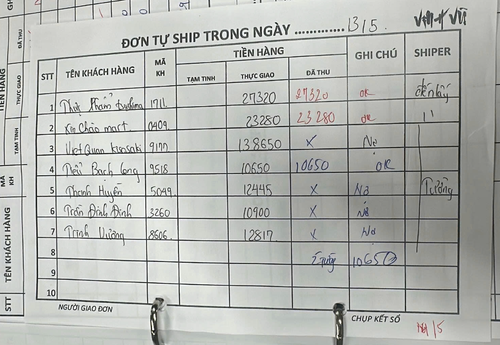 ĐƠN TỰ SHIP TRONG NGÀY ............. 13/5
STT TÊN KHÁCH HÀNG MÃ KH TIỀN HÀNG GHI CHÚ SHIPER
TẠM TINH THỰC GIAO ĐÃ THU
1 Thực Phẩm 1711 27320 27320 OK
2 Xin Chào mart 0404 23280 23280 OK "
3 Việt Quán 9177 138650 X Nợ
4 Bạch Long 9518 10650 10650 OK
5 Thanh Huyền 5049 12445 X Nợ Tưởng
6 Trần Đình Đình 3260 10900 X Nợ
7 Trinh Vương 8606 12817 X Nợ
8 10650
9
10
NGƯỜI GIAO ĐƠN CHỤP KẾT SỐ
STT TÊN KHÁCH HÀNG MÃ KH TẠM TINH THỰC GIAO ĐÃ THU
TIỀN HÀNG